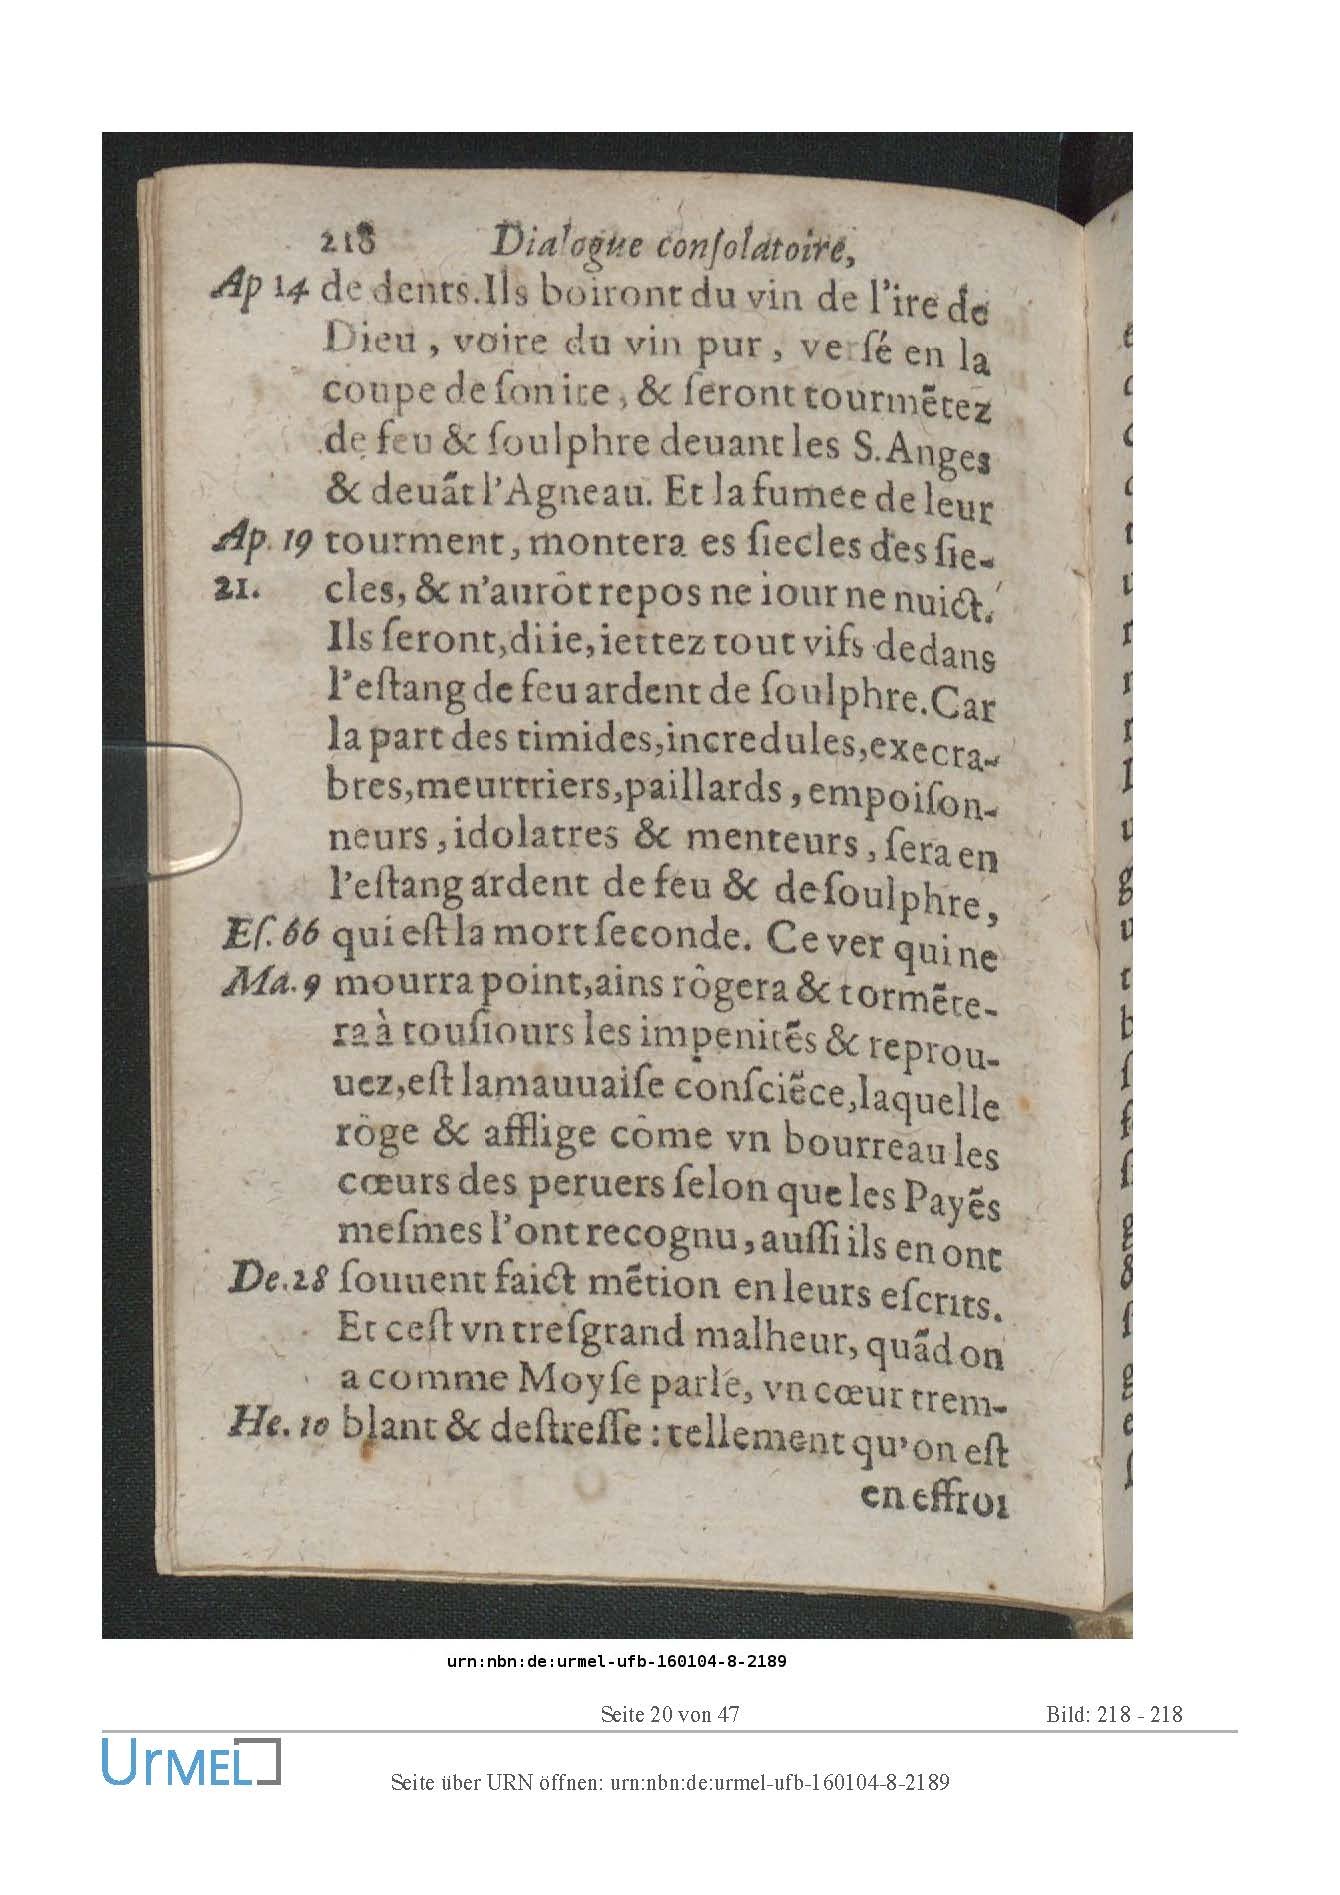 218 Dialogue conſolatoire,
Ap 14 de dents. Ils boiront du vin de l'ire de
Dieu , voire du vin pur , verſé en la
coupe de ſon ire , & ſeront tourmẽtez
de feu & ſoulphre deuant les S. Anges
& deuãt l'Agneau. Et la fumee de leur
Ap. 19 tourment, montera es ſiecles des ſie-
21. cles, & n'aurõt repos ne iour ne nuict.
Ils ſeront, di ie, iettez tout vifs dedans
l'eſtang de feu ardent de ſoulphre. Car
la part des timides, incredules, execra-
bres, meurtriers, paillards , empoiſon-
neurs , idolatres & menteurs , ſera en
l'eſtang ardent de feu & de ſoulphre,
Eſ. 66 qui eſt la mort ſeconde. Ce ver qui ne
Ma. 9 mourra point, ains rõgera & tormẽte-
ra à touſiours les impenitẽs & reprou-
uez, eſt la mauuaiſe conſciẽce, laquelle
rõge & afflige cõme vn bourreau les
cœurs des peruers ſelon que les Payẽs
meſmes l'ont recognu, auſſi ils en ont
De. 28 ſouuent faict mẽtion en leurs eſcrits.
Et ceſt vn treſgrand malheur, quãd on
a comme Moyſe parle, vn cœur trem-
He. 10 blant & deſtreſſe : tellement qu'on eſt
en effroi
urn:nbn:de:urmel-ufb-160104-8-2189
Seite 20 von 47 Bild: 218 - 218
UrMEL
Seite über URN öffnen: urn:nbn:de:urmel-ufb-160104-8-2189